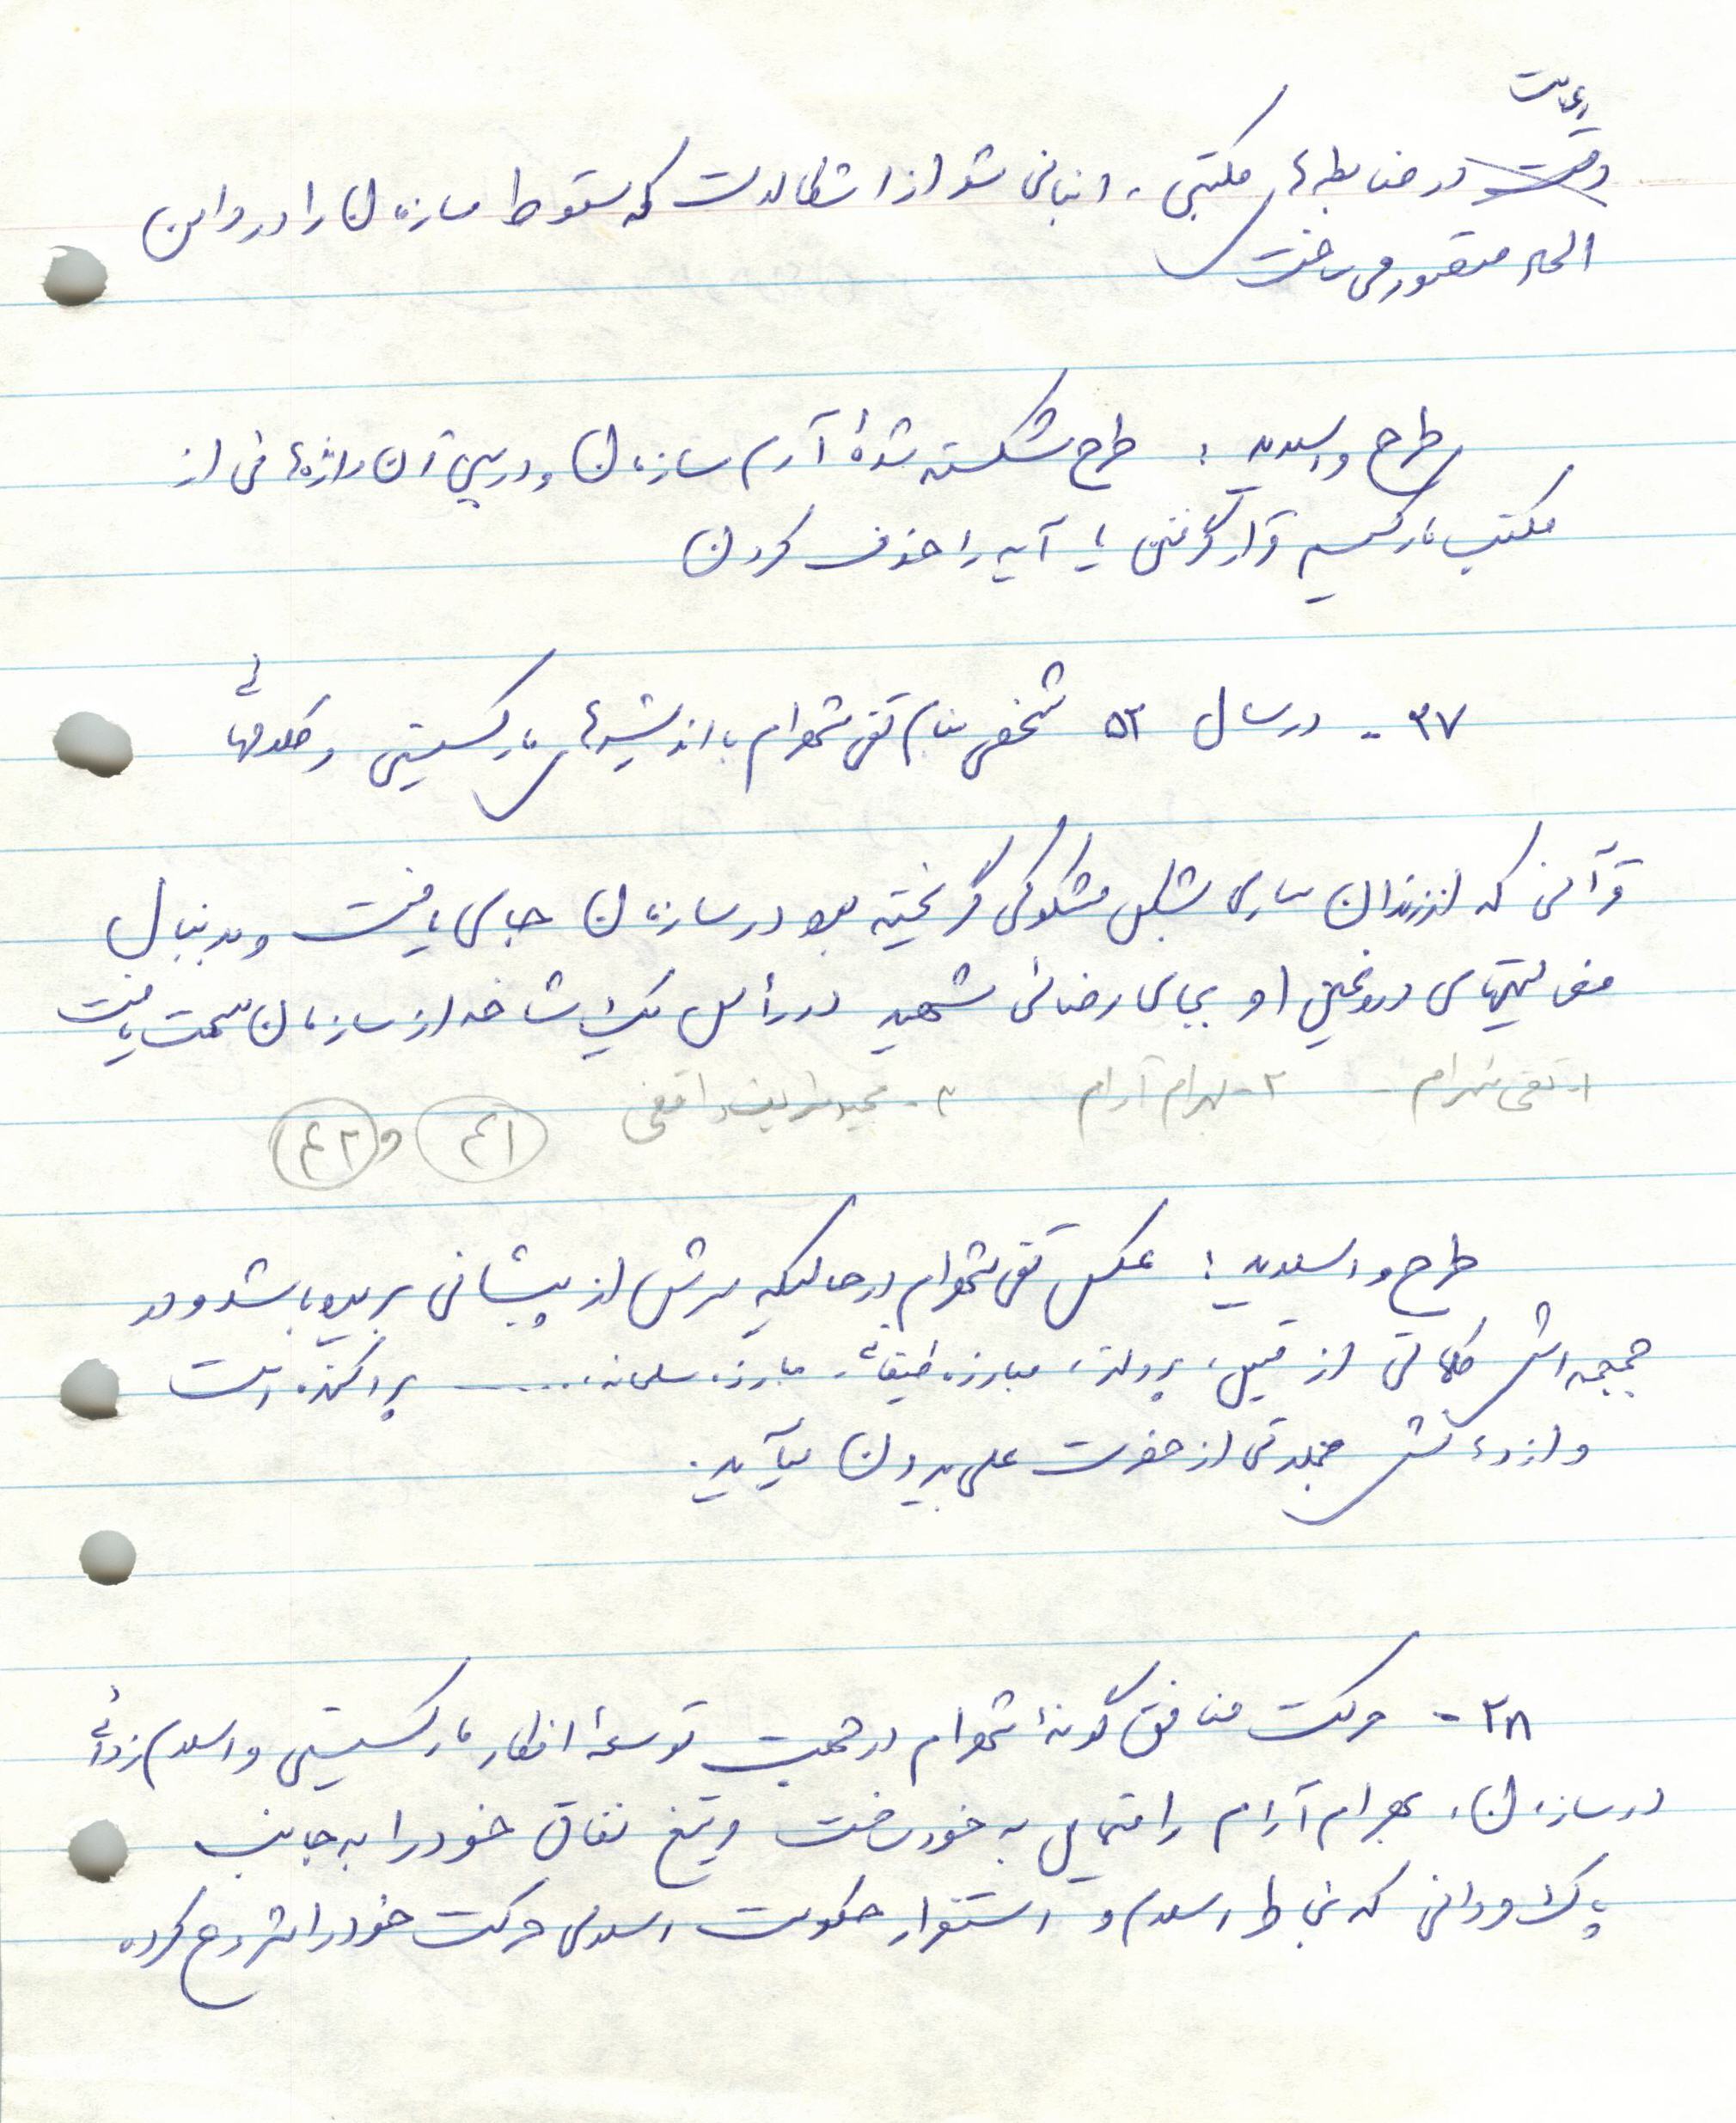 رعایت
دقت در ضابطه‌های مکتبی، انبانی شد از اشکالات که سقوط سازمان را در
الحاد متصور می‌ساخت
طرح و اسلاید: طرح شکسته شدهٔ آرم سازمان و در پی آن واژه‌هائی از
مکتب مارکسیسم قرار گرفتن یا آیه را حذف کردن
۳۷ - در سال ۵۲ شخصی بنام تقی شهرام با اندیشه‌های مارکسیستی و
قرآنی که از زندان ساری بشکل مشکوکی گریخته بود در سازمان جای یافت و بدنبال
فعالیتهای دروغین او بجای رضائی شهید در رأس یک شاخه از سازمان سمت یافت
۱- تقی شهرام - ۲- بهرام آرام ۳- مجید شریف واقفی
۴۱ و ۴۲
طرح و اسلاید: عکس تقی شهرام در حالیکه سرش از پیشانی بریده باشد و در
جمجمه‌اش کلماتی از قبیل، پرولتر، مبارزه طبقاتی، مبارزه مسلحانه، ..... پراکنده است
و از دهانش جملاتی از حضرت علی بیرون میآید.
۳۸ - حرکت منافق گونهٔ شهرام در جهت توسعهٔ افکار مارکسیستی و اسلام زدائی
در سازمان، بهرام آرام را متمایل به خود ساخت و تیغ نفاق خود را به جانب
پاکمردانی که بخاطر اسلام و استقرار حکومت اسلامی حرکت خود را شروع کرده